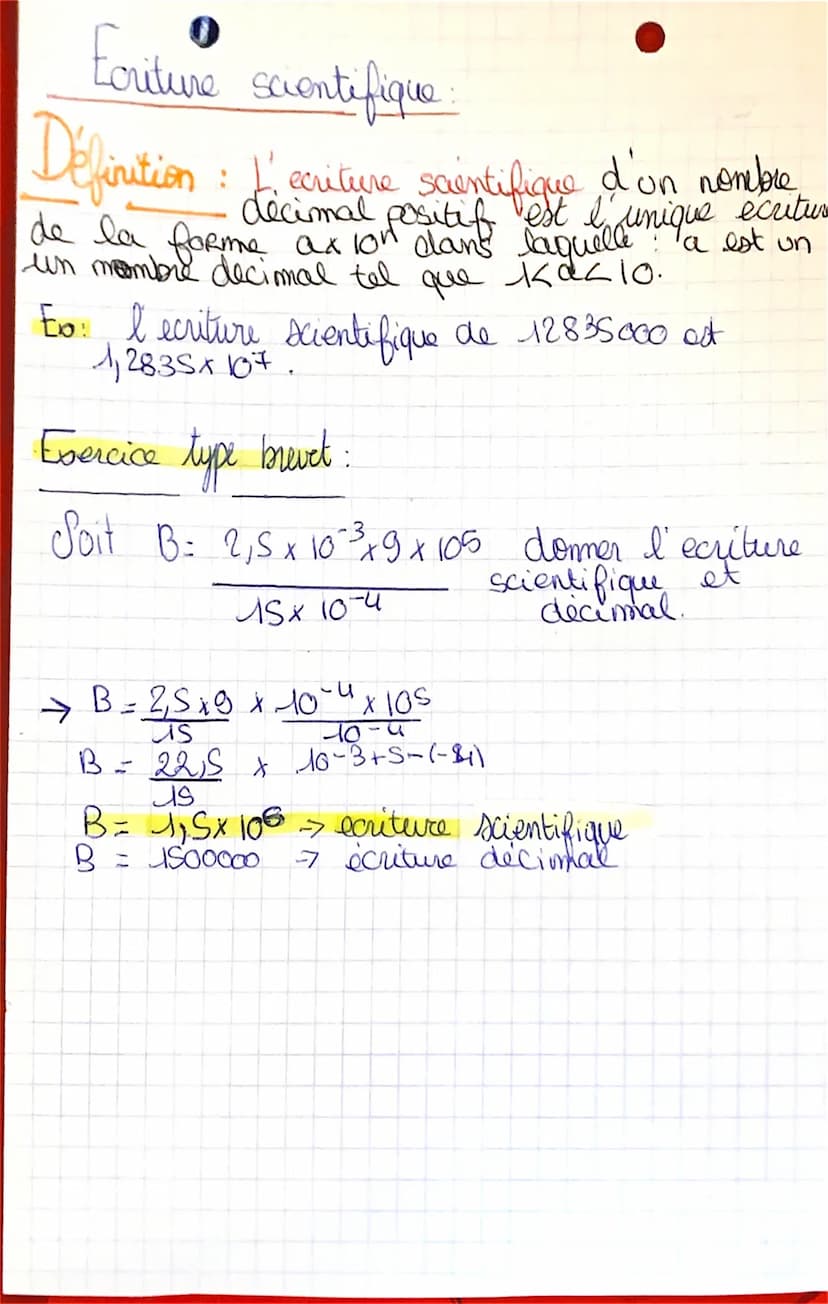 Ecriture scientifique :
Définition : L'ecriture scientifique d'un nombre
décimal positif est l'unique ecriture
de la forme a x 10ⁿ dans laquelle : a est un
un nombre décimal tel que 1<a<10.
Ex: l'ecriture scientifique de 12835000 est
1,2835x 10⁷.
Exercice type brevet :
Soit B= 2,5 x 10⁻³x9 x 10⁵ donner l'ecriture
scientifique et
15x 10⁻⁴ décimal.
→ B = 2,5x9 x 10⁻⁴ x 10⁵
15 10⁻⁴
B = 22,5 x 10⁻³⁺⁵⁻⁽⁻⁴⁾
15
B= 1,5x 10⁶ → ecriture scientifique
B = 1500000 → écriture décimal